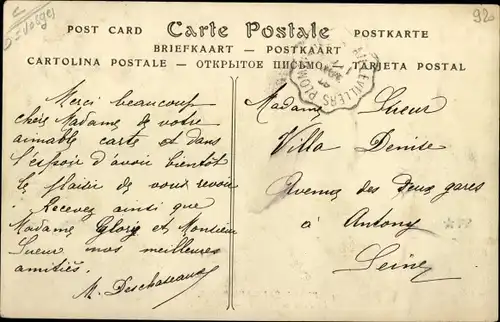 POST CARD Carte Postale POSTKARTE
BRIEFKAART — POSTKAART
CARTOLINA POSTALE — ОТКРЫТОЕ ПИСЬМО — TARJETA POSTAL
920
D = Vosges
Merci beaucoup
chère Madame de votre
aimable carte et dans
l'espoir d'avoir bientôt
le plaisir de vous revoir
Recevez ainsi que
Madame Glory et Monsieur
Sueur nos meilleures
amitiés.
M. Deschaseaux
Madame Sueur
Villa Denise
Avenue des deux gares
à Antony
Seine